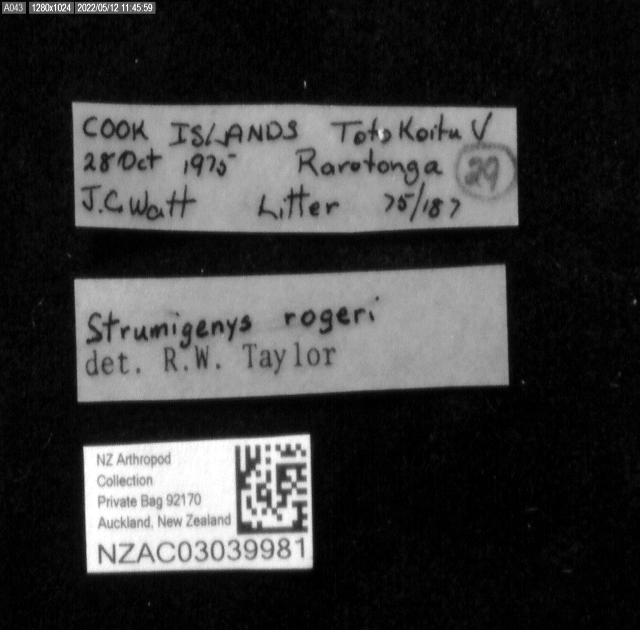 A043 1280x1024 2022/05/12 11:45:59
COOK ISLANDS TotoKoitu V
28 Oct 1975 Rarotonga 29
J.C. Watt Litter 75/187
Strumigenys rogeri
det. R.W. Taylor
NZ Arthropod
Collection
Private Bag 92170
Auckland, New Zealand
NZAC03039981